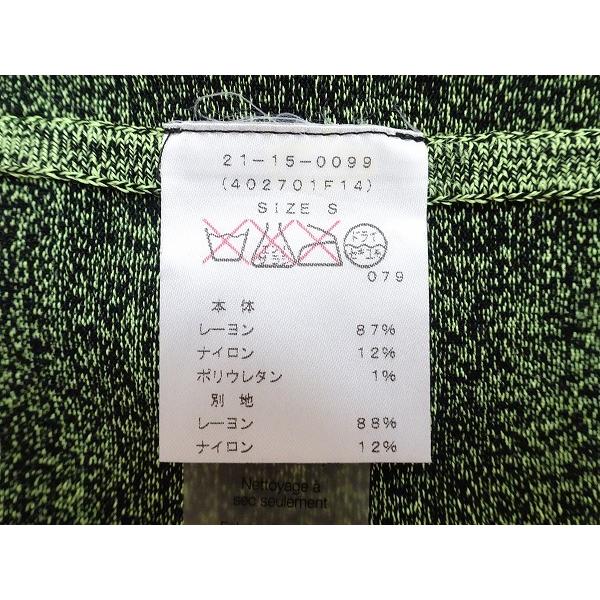 21-15-0099
(402701F14)
SIZE S
ドライ
セキユ系
079
本体
レーヨン 87%
ナイロン 12%
ポリウレタン 1%
別地
レーヨン 88%
ナイロン 12%
Nettoyage à
sec seulement